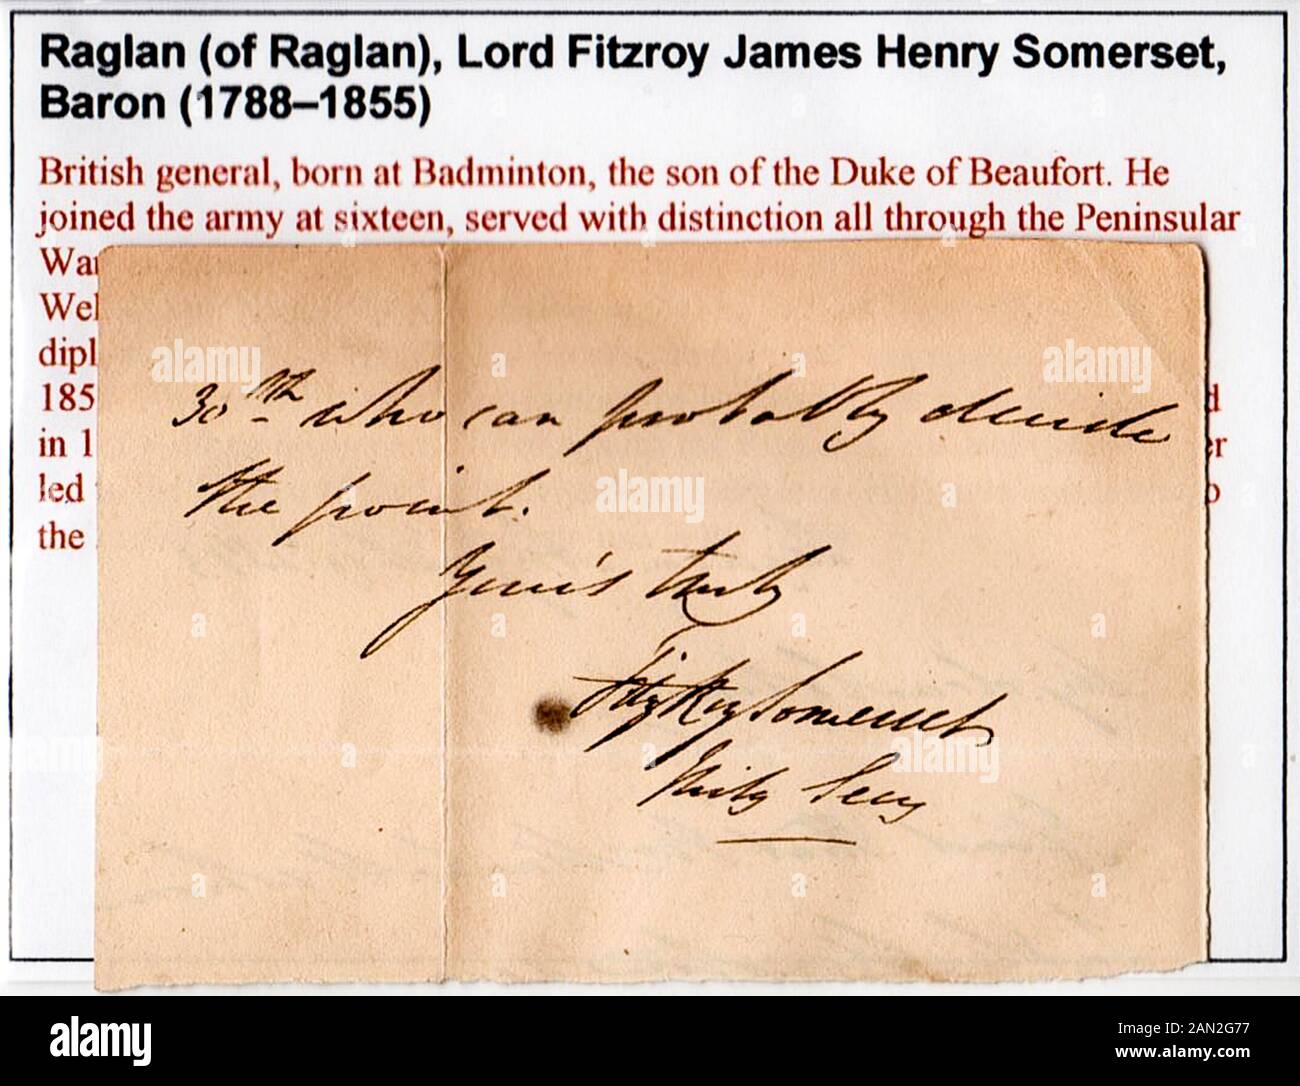 Raglan (of Raglan), Lord Fitzroy James Henry Somerset,
Baron (1788–1855)
British general, born at Badminton, the son of the Duke of Beaufort. He
joined the army at sixteen, served with distinction all through the Peninsular
War
Wel
dipl
185
in 1
led
the
30th who can probably decide
the point.
Your's truly
FitzRoy Somerset
Mily Secy
alamy
Image ID: 2AN2G77
www.alamy.com